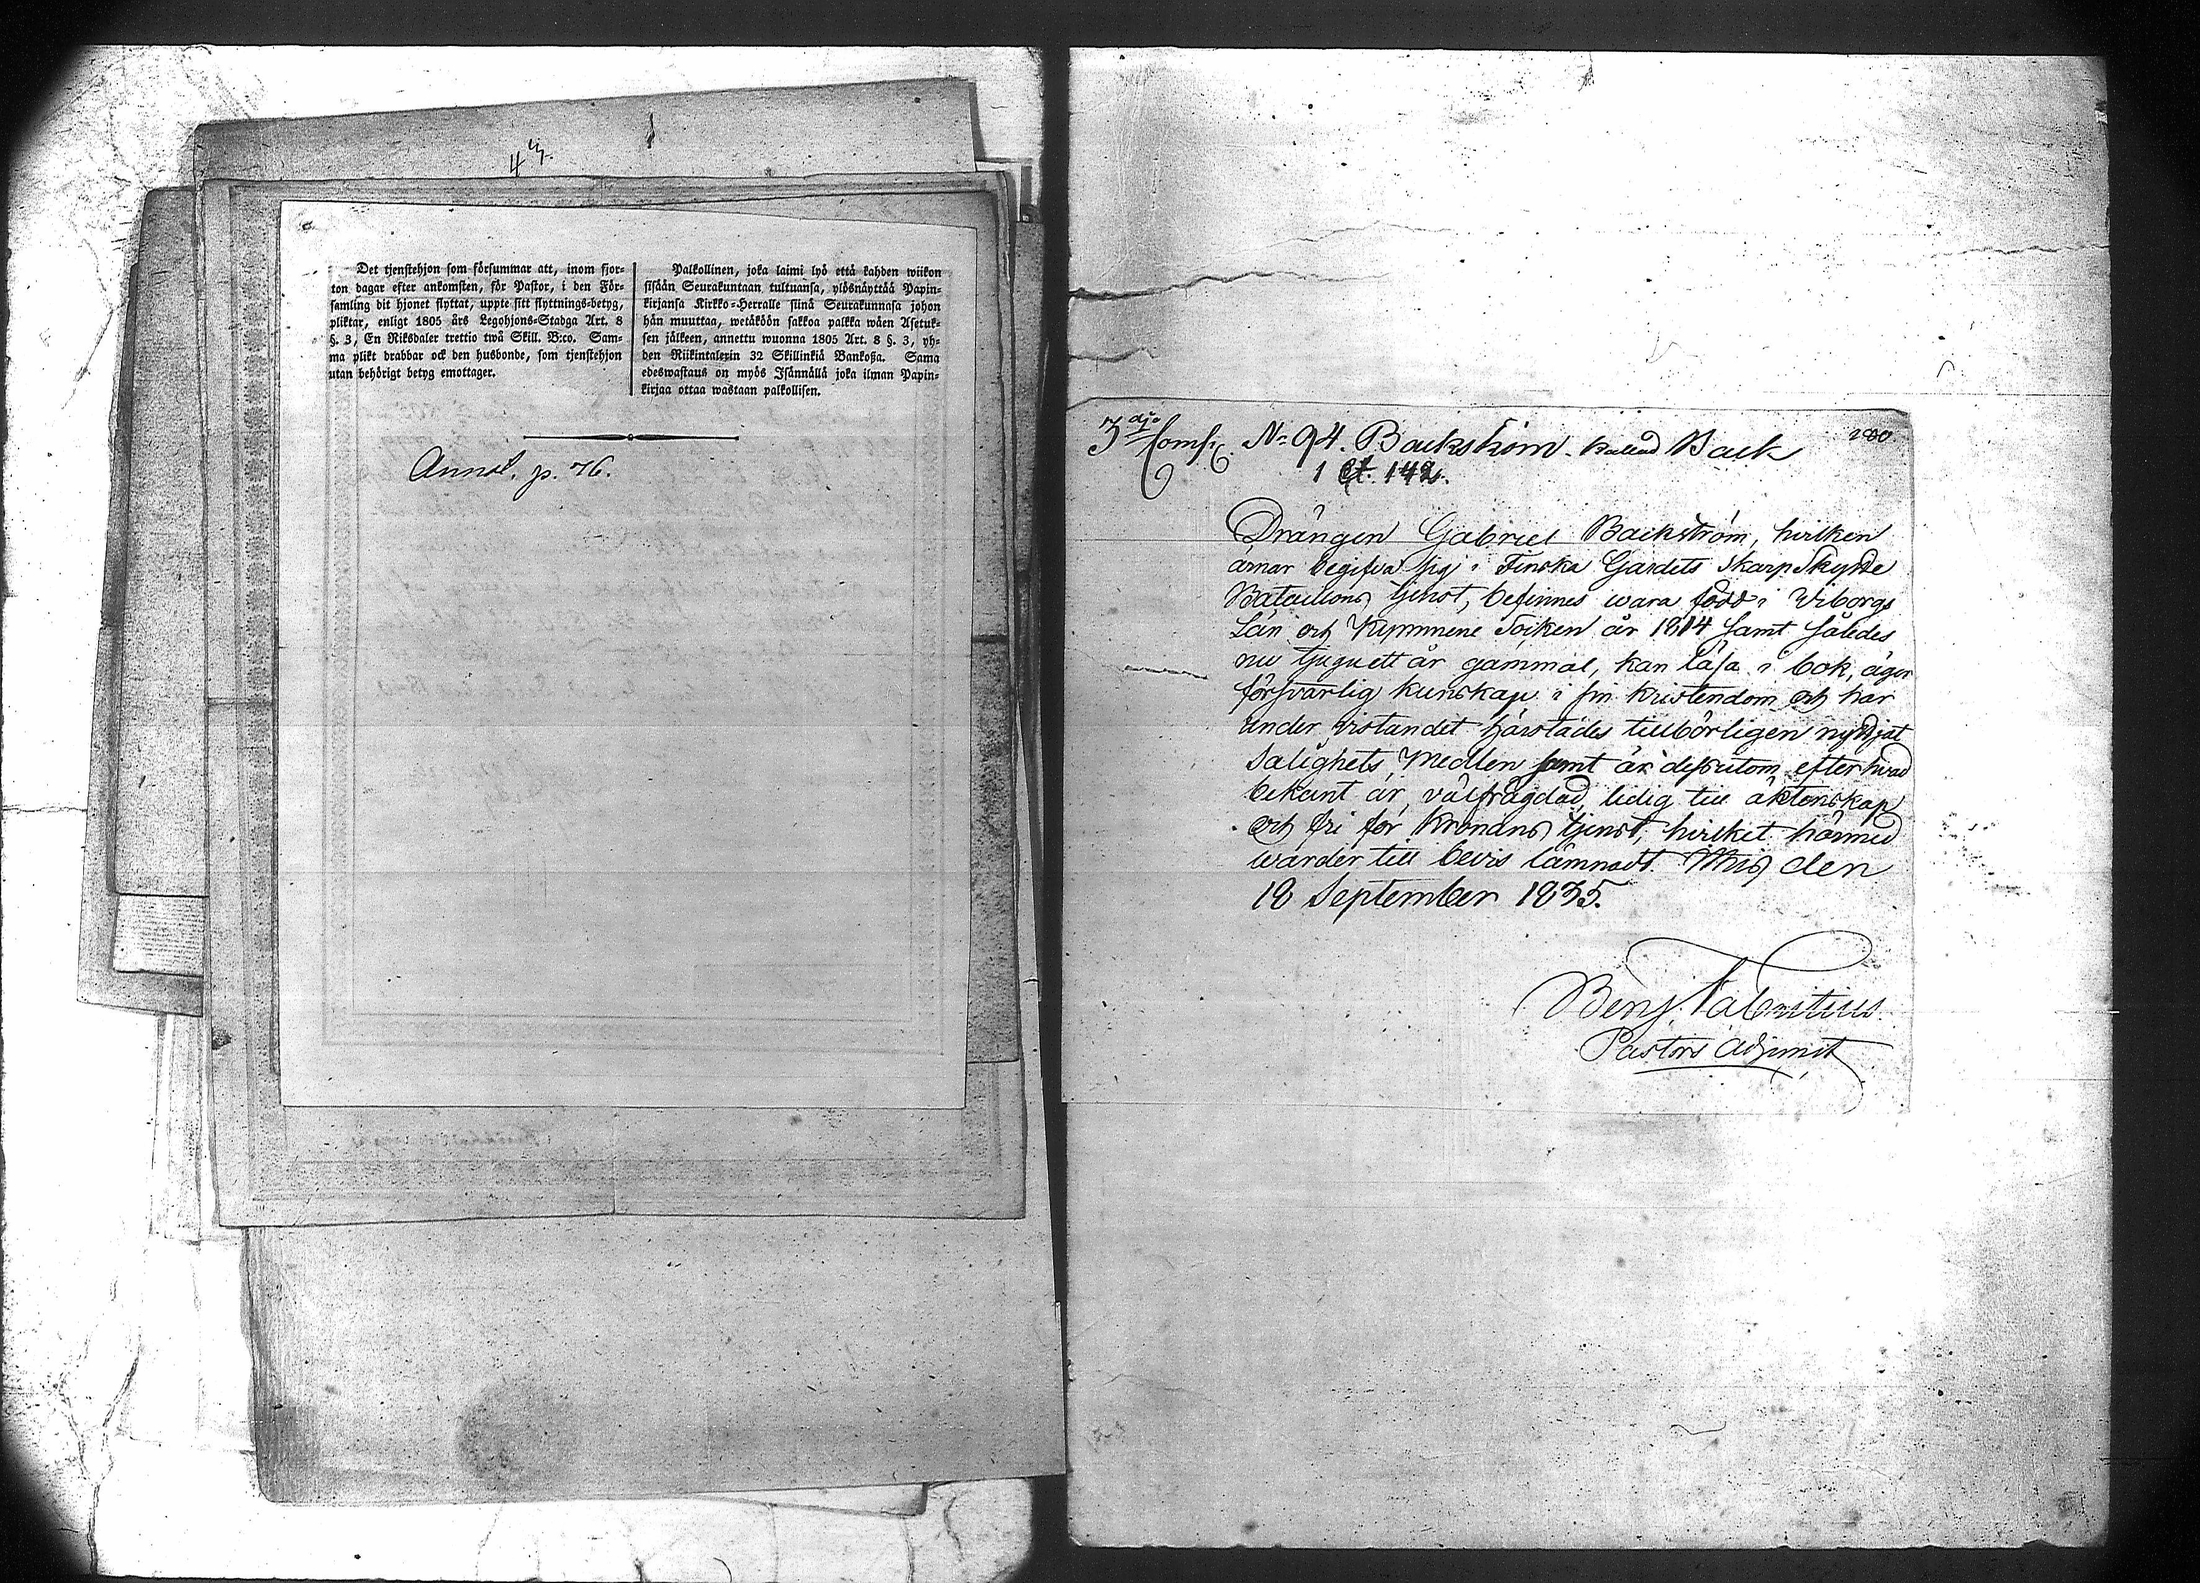 43.
Det tjenstehjon som försummar att, inom fjor-
ton dagar efter ankomsten, för Pastor, i den För-
samling dit hjonet flyttat, uppte sitt flyttnings-betyg,
pliktar, enligt 1805 års Legohjons-Stadga Art. 8
§. 3, En Riksdaler trettio twå Skill. B:co. Sam-
ma plikt drabbar ock den husbonde, som tjenstehjon
utan behörigt betyg emottager.
Palkollinen, joka laimi lyö että kahden wiikon
sisään Seurakuntaan tultuansa, ylösnäyttää Papin-
kirjansa Kirkko-Herralle siinä Seurakunnasa johon
hän muuttaa, wetäköön sakkoa palkka wäen Asetuk-
sen jälkeen, annettu wuonna 1805 Art. 8 §. 3, yh-
den Riikintalerin 32 Skillinkiä Bankoßa. Sama
edeswastaus on myös Isännällä joka ilman Papin-
kirjaa ottaa wastaan palkollisen.
Annot. p. 76.
3dje Comp. No 94. Backström. kallad Back
200
1 142.
Drängen Gabriel Backström, hvilken
ärnar begifva sig i Finska Gardets Skarp Skytte
Bataillons tjenst, befinnes wara född i Viborgs
Län och Kymmene Socken år 1814 samt således
nu tjuguett år gammal, kan läsa i bok, äger
försvarlig kunskap i sin kristendom och har
under vistandet härstädes tillbörligen nyttjat
Salighets Medlen samt är desutom efter hvad
bekant är, välfrägdad, ledig till äktenskap
och fri för Kronans tjenst, hvilket härmed
warder till bevis lämnadt. den
18 September 1835.
Benj. Fabritius.
Pastors Adjunct